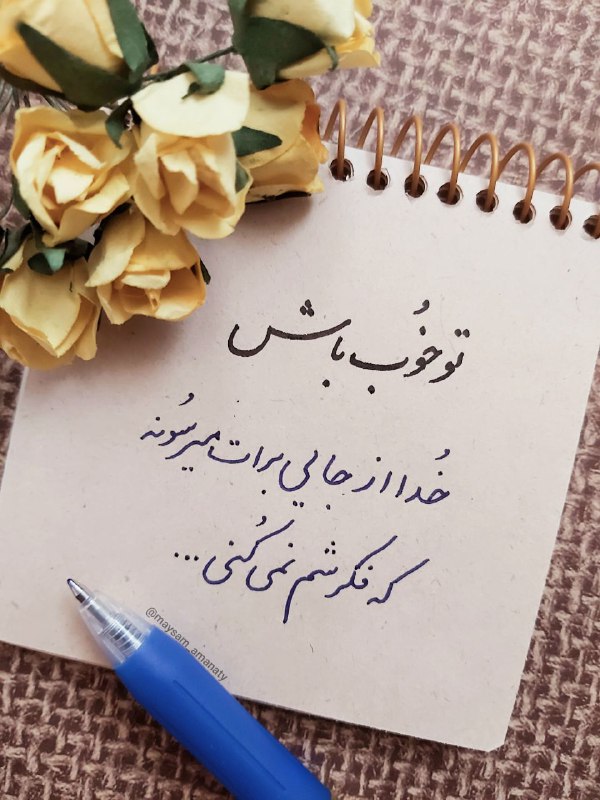 تو خُوب باش
خُدا از جایی برات میرسُونه
که فکرشم نمی کُنی...
@maysam_amanaty